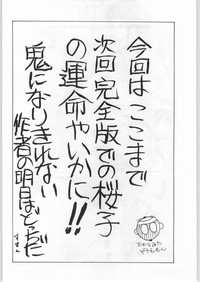 今回はここまで
次回完全版での桜子
の運命やいかに!!
鬼になりきれない
作者の明日はどっちだ
すまん